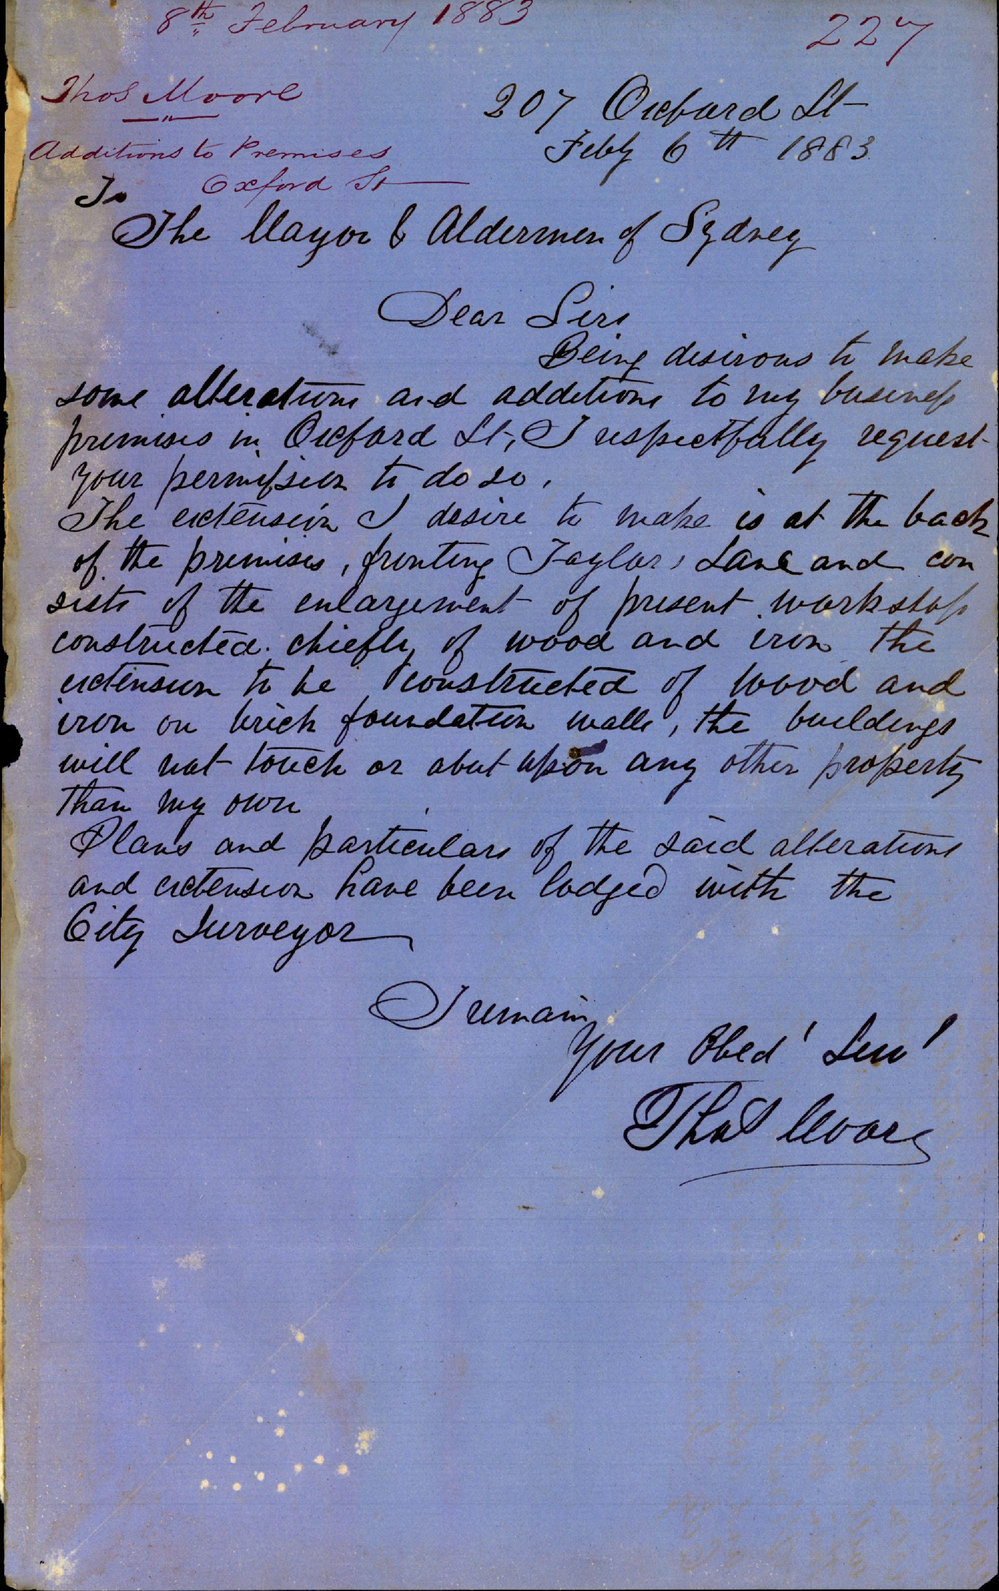 8th February 1883
227
Thos Moore
Additions to Premises
Oxford St
207 Oxford St
Feby 6th 1883
To
The Mayor & Aldermen of Sydney
Dear Sirs
Being desirous to make
some alterations and additions to my business
premises in Oxford St, I respectfully request
your permission to do so.
The extension I desire to make is at the back
of the premises, fronting Taylors Lane and con
sists of the enlargement of present workshop
constructed chiefly of wood and iron the
extension to be constructed of wood and
iron on brick foundation walls, the buildings
will not touch or abut upon any other property
than my own
Plans and particulars of the said alterations
and extension have been lodged with the
City Surveyor
I remain
Your Obed' Serv'
Thos Moore